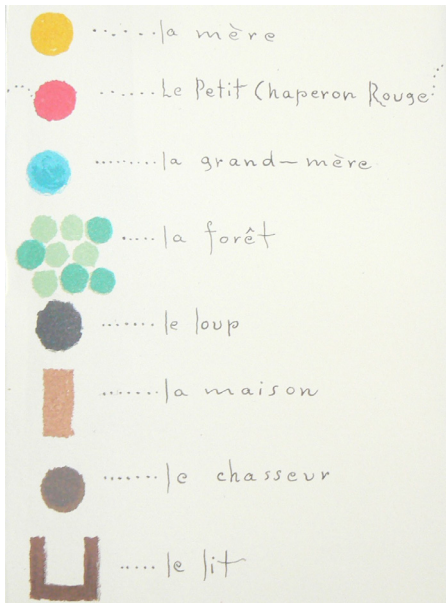 la mère
Le Petit Chaperon Rouge
la grand-mère
la forêt
le loup
la maison
le chasseur
le lit